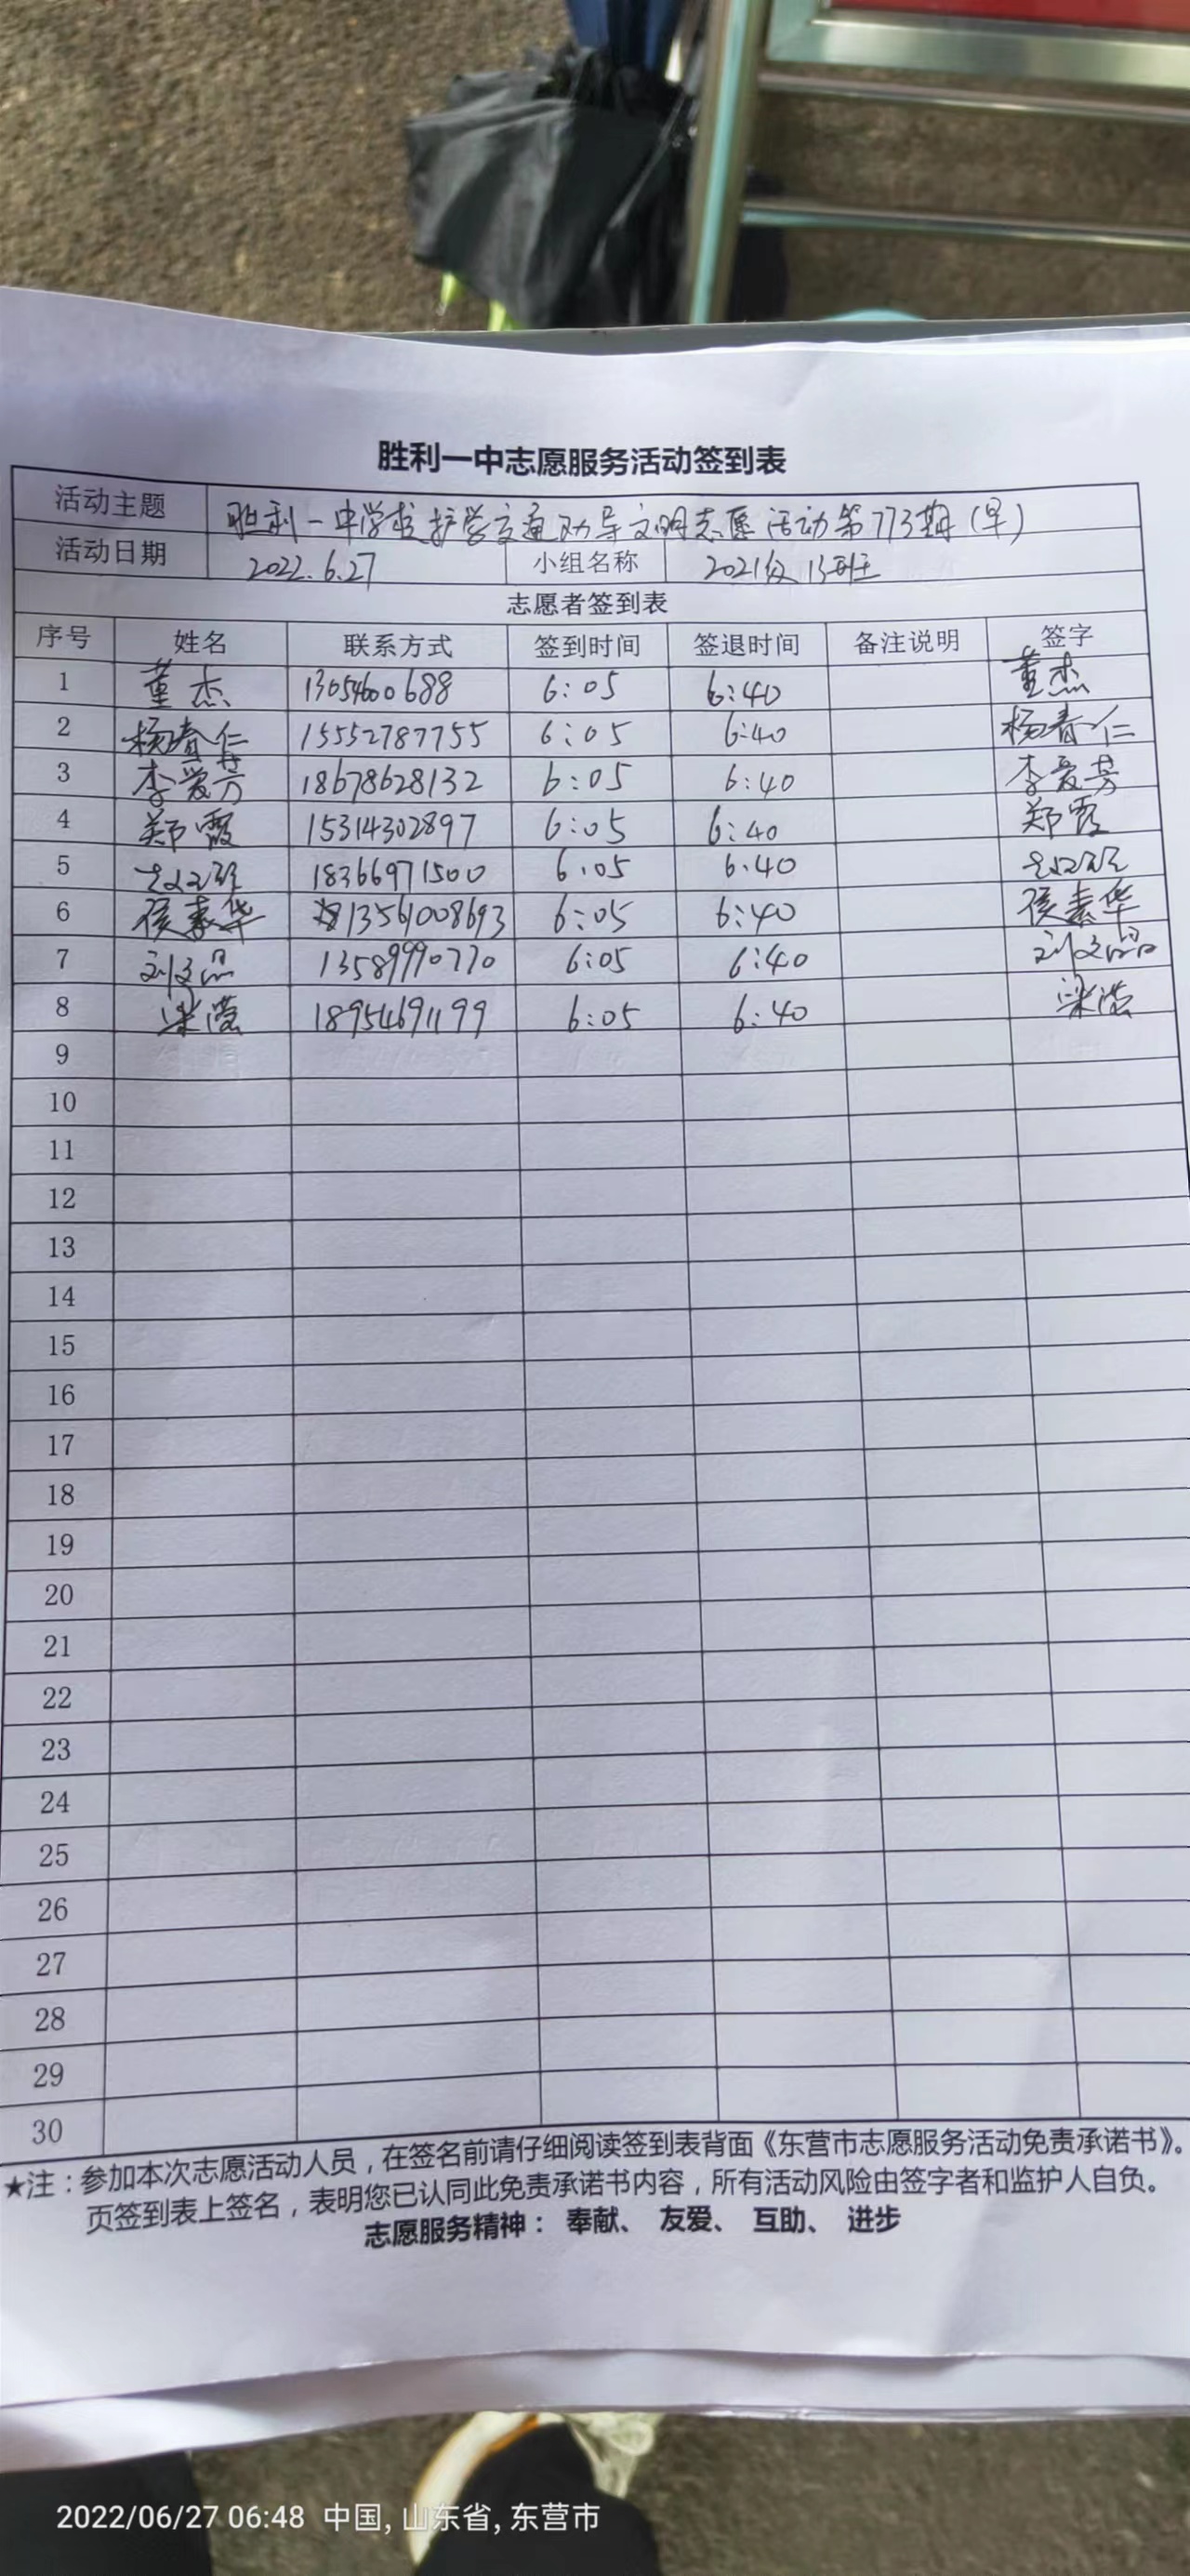 胜利一中志愿服务活动签到表
活动主题 胜利一中学校护学交通劝导文明志愿活动第773期(早)
活动日期 2022.6.27 小组名称 2021级13班
志愿者签到表
序号 姓名 联系方式 签到时间 签退时间 备注说明 签字
1 董杰 13054600688 6:05 6:40 董杰
2 杨春仁 15552787755 6:05 6:40 杨春仁
3 李爱芳 18678628132 6:05 6:40 李爱芳
4 郑霞 15314302897 6:05 6:40 郑霞
5 18366971500 6:05 6:40
6 侯素华 13561008693 6:05 6:40 侯素华
7 刘文晶 13589990770 6:05 6:40 刘文晶
8 梁滢 18954691199 6:05 6:40 梁滢
9
10
11
12
13
14
15
16
17
18
19
20
21
22
23
24
25
26
27
28
29
30
★注：参加本次志愿活动人员，在签名前请仔细阅读签到表背面《东营市志愿服务活动免责承诺书》。
页签到表上签名，表明您已认同此免责承诺书内容，所有活动风险由签字者和监护人自负。
志愿服务精神： 奉献、 友爱、 互助、 进步
2022/06/27 06:48 中国, 山东省, 东营市